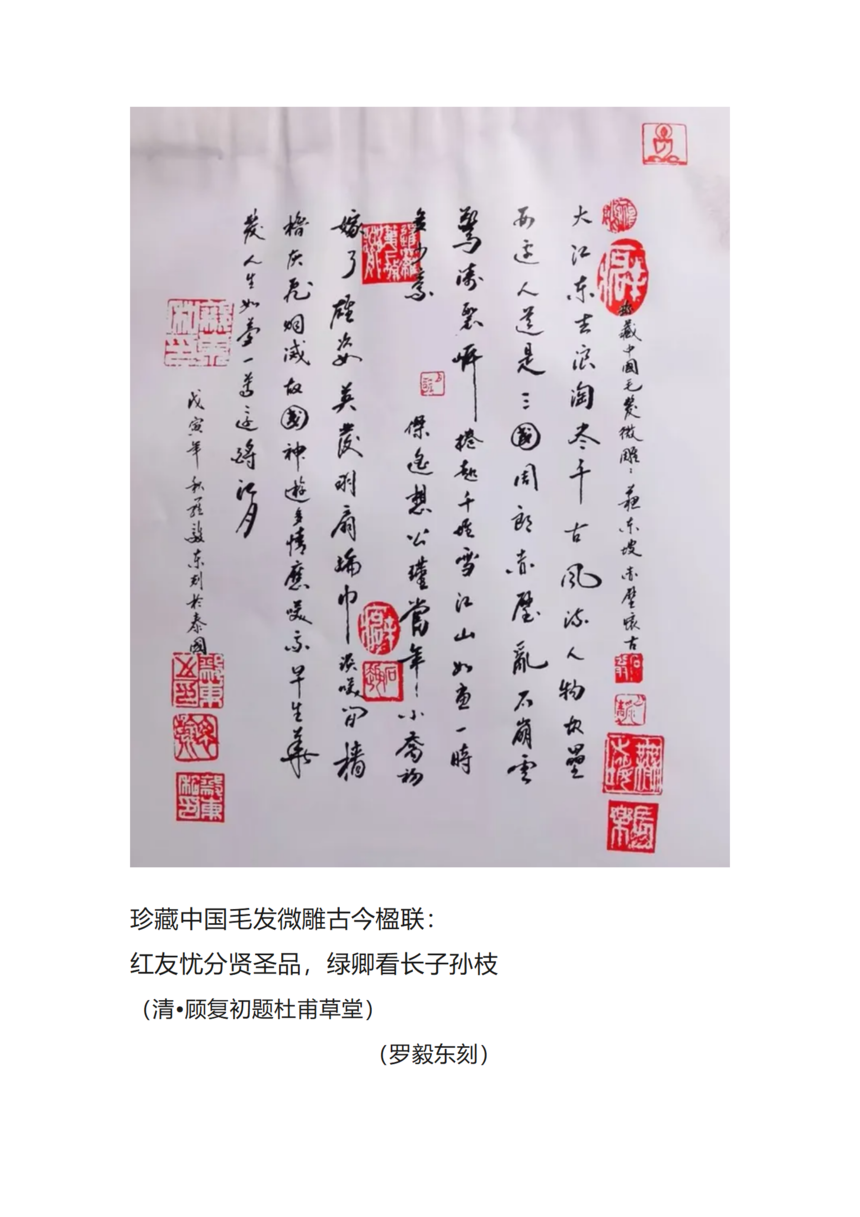 珍藏中国毛發微雕：蘓东坡赤壁懷古
大江东去浪淘尽千古风流人物故壘
西边人道是三國周郎赤壁亂石崩雲
驚涛裂岸捲起千堆雪江山如画一時
多少豪傑遥想公瑾當年小喬初
嫁了雄姿英發羽扇纶巾谈笑间樯
橹灰飛烟滅故國神遊多情應笑我早生華
發人生如夢一尊还酹江月
戊寅年秋罗毅东刻於泰國
珍藏中国毛发微雕古今楹联：
红友忧分贤圣品，绿卿看长子孙枝
（清•顾复初题杜甫草堂）
（罗毅东刻）